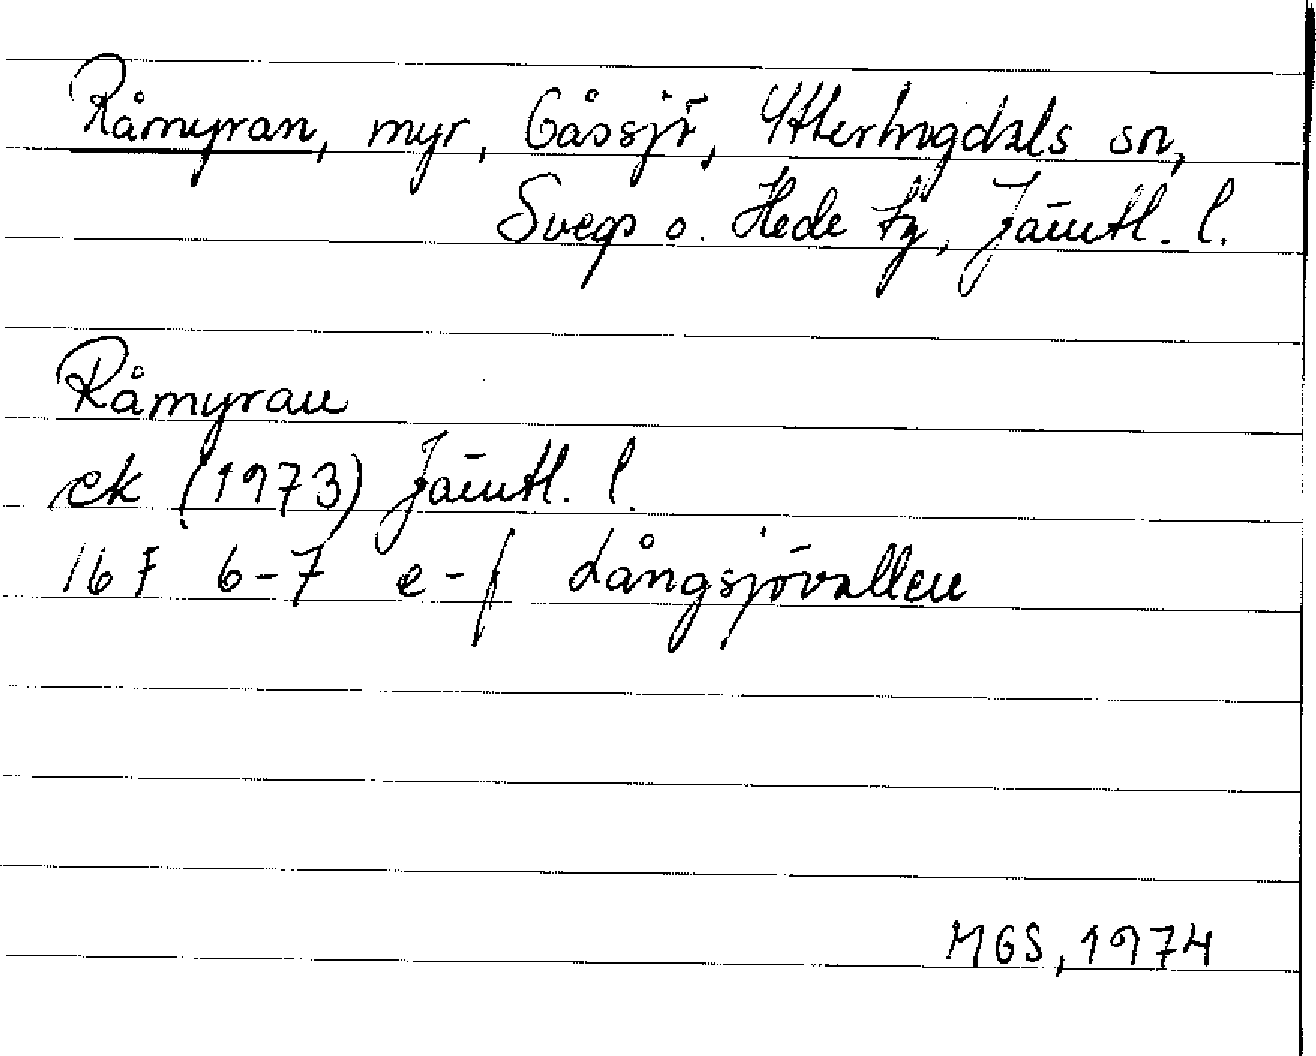 Råmyran, myr, Gåssjö, Ytterhogdals sn,
Svegs o. Hede tg, Jämtl. l.
Råmyran
ek (1973) Jämtl. l.
16 F 6-7 e-f Långsjövallen
MGS, 1974